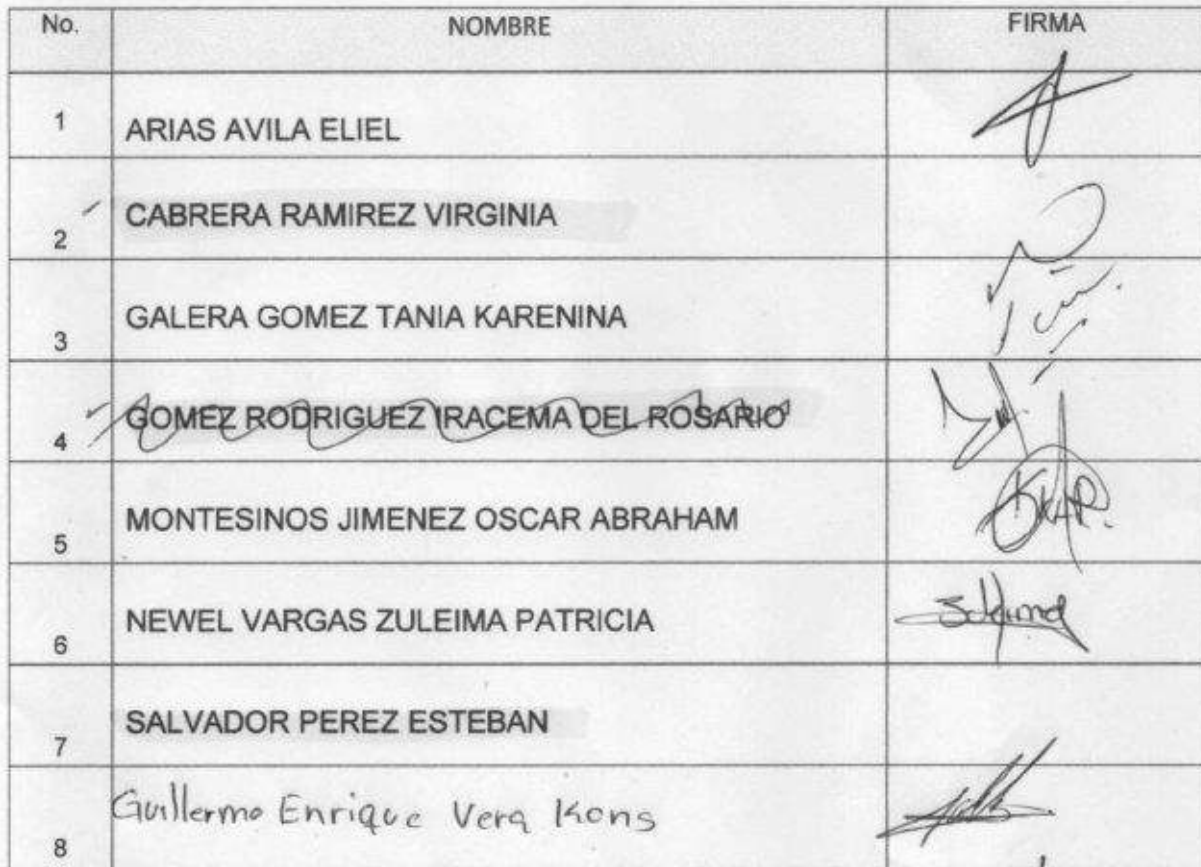 No. NOMBRE FIRMA
1 ARIAS AVILA ELIEL
2 CABRERA RAMIREZ VIRGINIA
3 GALERA GOMEZ TANIA KARENINA
4 GOMEZ RODRIGUEZ IRACEMA DEL ROSARIO
5 MONTESINOS JIMENEZ OSCAR ABRAHAM
6 NEWEL VARGAS ZULEIMA PATRICIA
7 SALVADOR PEREZ ESTEBAN
8 Guillermo Enrique Vera Kons